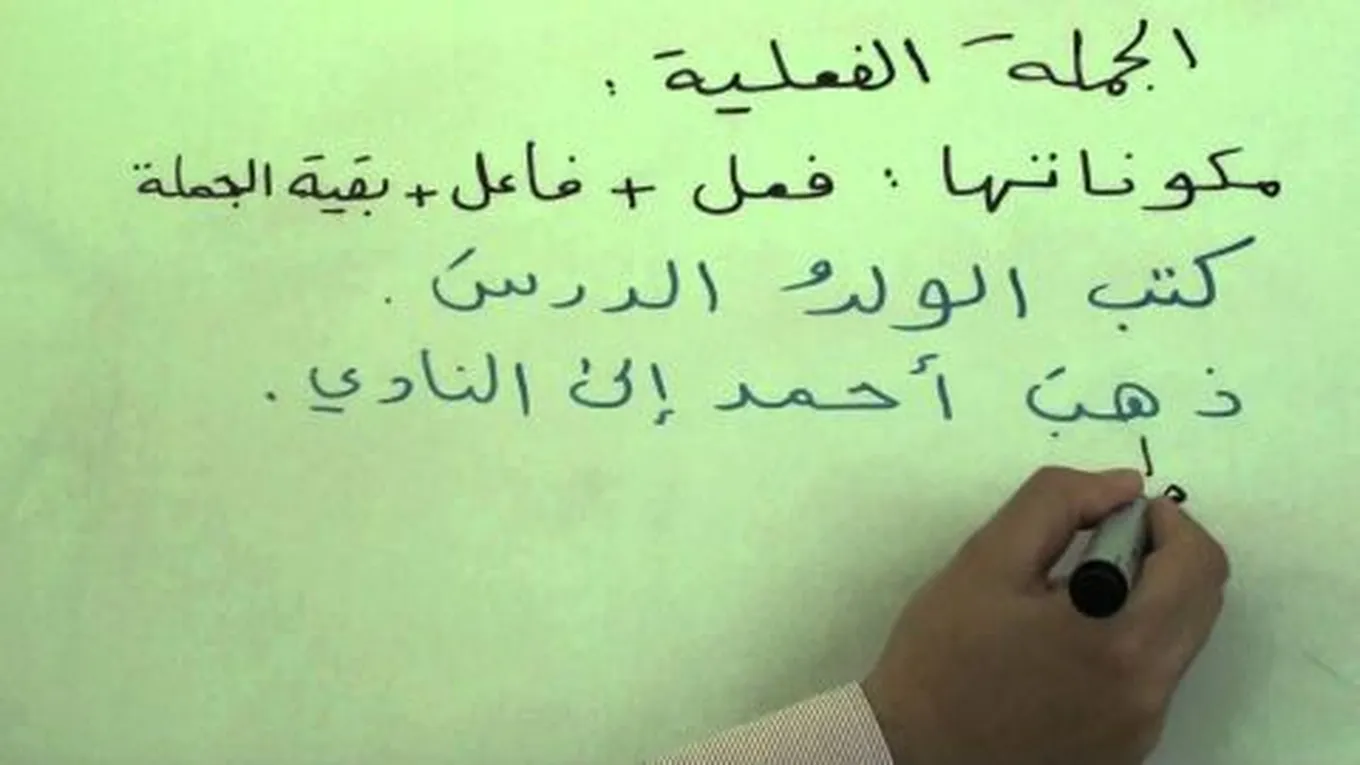 الجملة الفعلية :
مكوناتها : فعل + فاعل + بقية الجملة
كتب الولدُ الدرسَ .
ذهبَ أحمد إلى النادي .